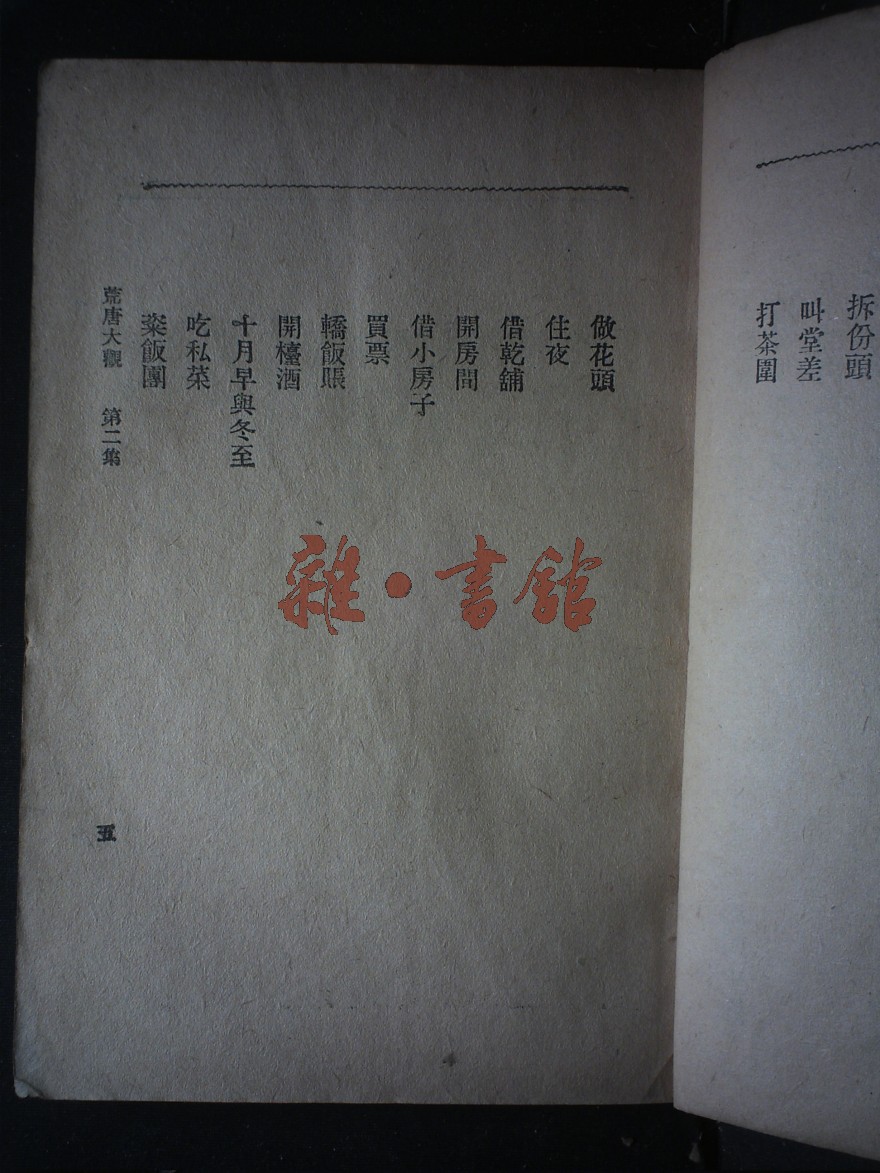 拆份頭
叫堂差
打茶圍
做花頭
住夜
借乾舖
開房間
借小房子
買票
轎飯賬
開檯酒
十月早與冬至
吃私菜
粢飯團
荒唐大觀 第二集
五
雜·書館